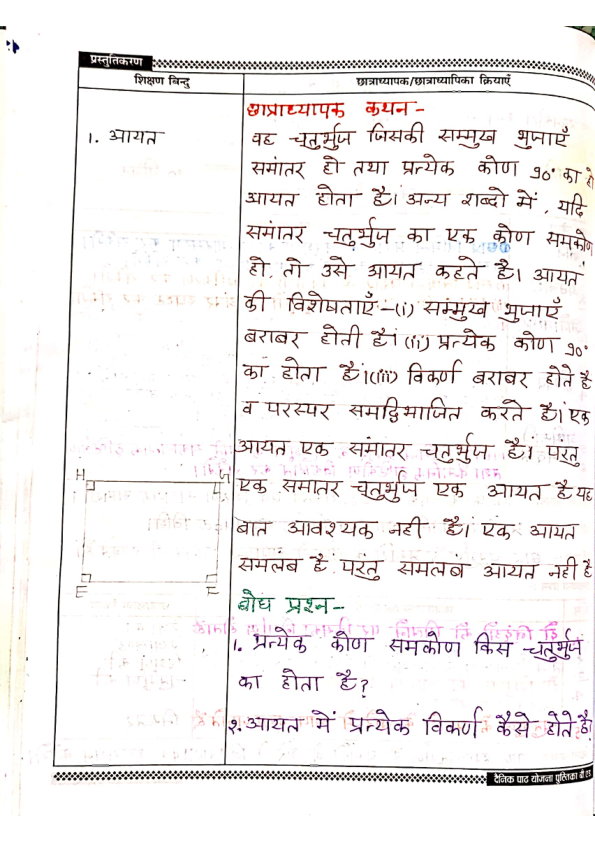 प्रस्तुतिकरण
शिक्षण बिन्दु
छात्राध्यापक/छात्राध्यापिका क्रियाएँ
छात्राध्यापक कथन -
1. आयत
वह चतुर्भुज जिसकी सम्मुख भुजाएँ
समांतर हो तथा प्रत्येक कोण 90° का हो
आयत होता है। अन्य शब्दो में, यदि
समांतर चतुर्भुज का एक कोण समकोण
हो, तो उसे आयत कहते है। आयत
की विशेषताएँ:-(i) सम्मुख भुजाएँ
बराबर होती है। (ii) प्रत्येक कोण 90°
का होता है।(iii) विकर्ण बराबर होते है
व परस्पर समद्विभाजित करते है। एक
आयत एक समांतर चतुर्भुज है। परंतु
एक समांतर चतुर्भुज एक आयत है यह
बात आवश्यक नही है। एक आयत
समलंब है परंतु समलंब आयत नही है
H G
E F
बोध प्रश्न-
1. प्रत्येक कोण समकोण किस चतुर्भुज
का होता है?
2. आयत में प्रत्येक विकर्ण कैसे होते है।
दैनिक पाठ योजना पुस्तिका बी एड